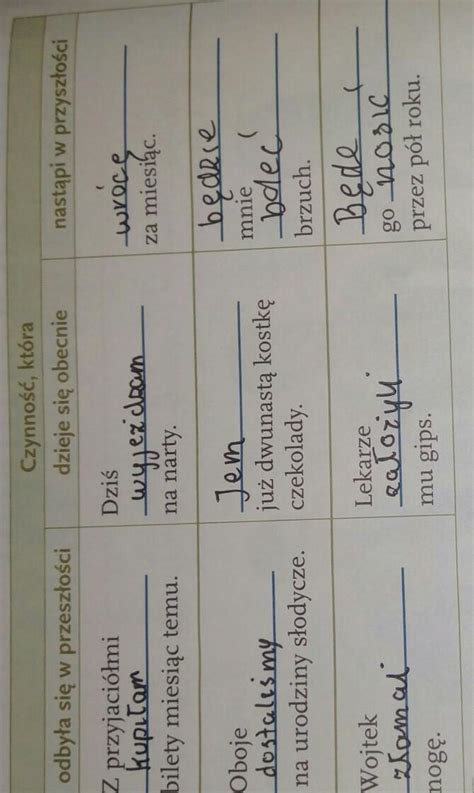 Czynność, która
odbyła się w przeszłości
dzieje się obecnie
nastąpi w przyszłości
Z przyjaciółmi
kupiłam
bilety miesiąc temu.
Dziś
wyjeżdżam
na narty.
wrócę
za miesiąc.
Oboje
dostaliśmy
na urodziny słodycze.
Jem
już dwunastą kostkę
czekolady.
będzie
mnie
boleć
brzuch.
Wojtek
złamał
nogę.
Lekarze
założyli
mu gips.
Będę
go nosić
przez pół roku.